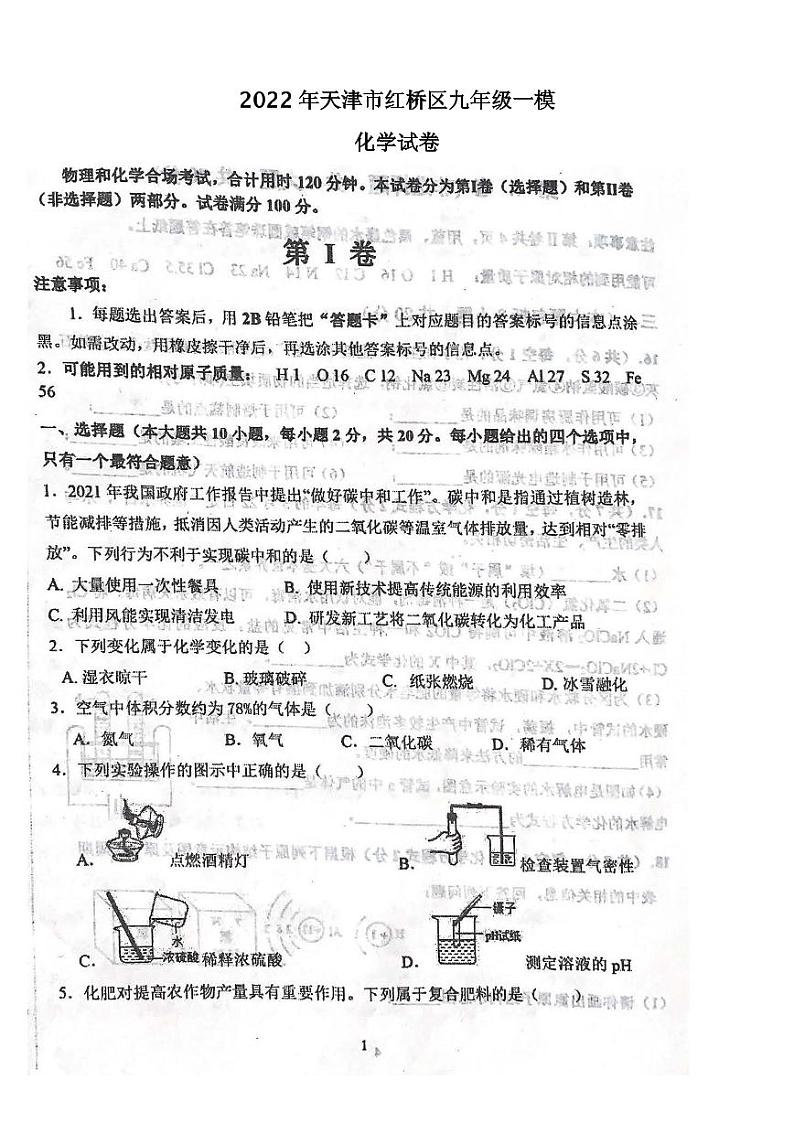 2022 年天津市红桥区九年级一模
化学试卷
物理和化学合场考试，合计用时 120 分钟。本试卷分为第Ⅰ卷（选择题）和第Ⅱ卷
（非选择题）两部分。试卷满分 100 分。
第 Ⅰ 卷
注意事项：
1．每题选出答案后，用 2B 铅笔把“答题卡”上对应题目的答案标号的信息点涂
黑。如需改动，用橡皮擦干净后，再选涂其他答案标号的信息点。
2．可能用到的相对原子质量： H 1 O 16 C 12 Na 23 Mg 24 Al 27 S 32 Fe
56
一、选择题（本大题共 10 小题，每小题 2 分，共 20 分。每小题给出的四个选项中，
只有一个最符合题意）
1．2021 年我国政府工作报告中提出“做好碳中和工作”。碳中和是指通过植树造林，
节能减排等措施，抵消因人类活动产生的二氧化碳等温室气体排放量，达到相对“零排
放”。下列行为不利于实现碳中和的是（ ）
A. 大量使用一次性餐具 B. 使用新技术提高传统能源的利用效率
C. 利用风能实现清洁发电 D. 研发新工艺将二氧化碳转化为化工产品
2．下列变化属于化学变化的是（ ）
A. 湿衣晾干 B. 玻璃破碎 C. 纸张燃烧 D. 冰雪融化
3．空气中体积分数约为 78%的气体是（ ）
A．氮气 B．氧气 C．二氧化碳 D．稀有气体
4．下列实验操作的图示中正确的是（ ）
A. 点燃酒精灯 B. 检查装置气密性
水
浓硫酸
镊子
pH试纸
C. 稀释浓硫酸 D. 测定溶液的 pH
5．化肥对提高农作物产量具有重要作用。下列属于复合肥料的是（ ）
1